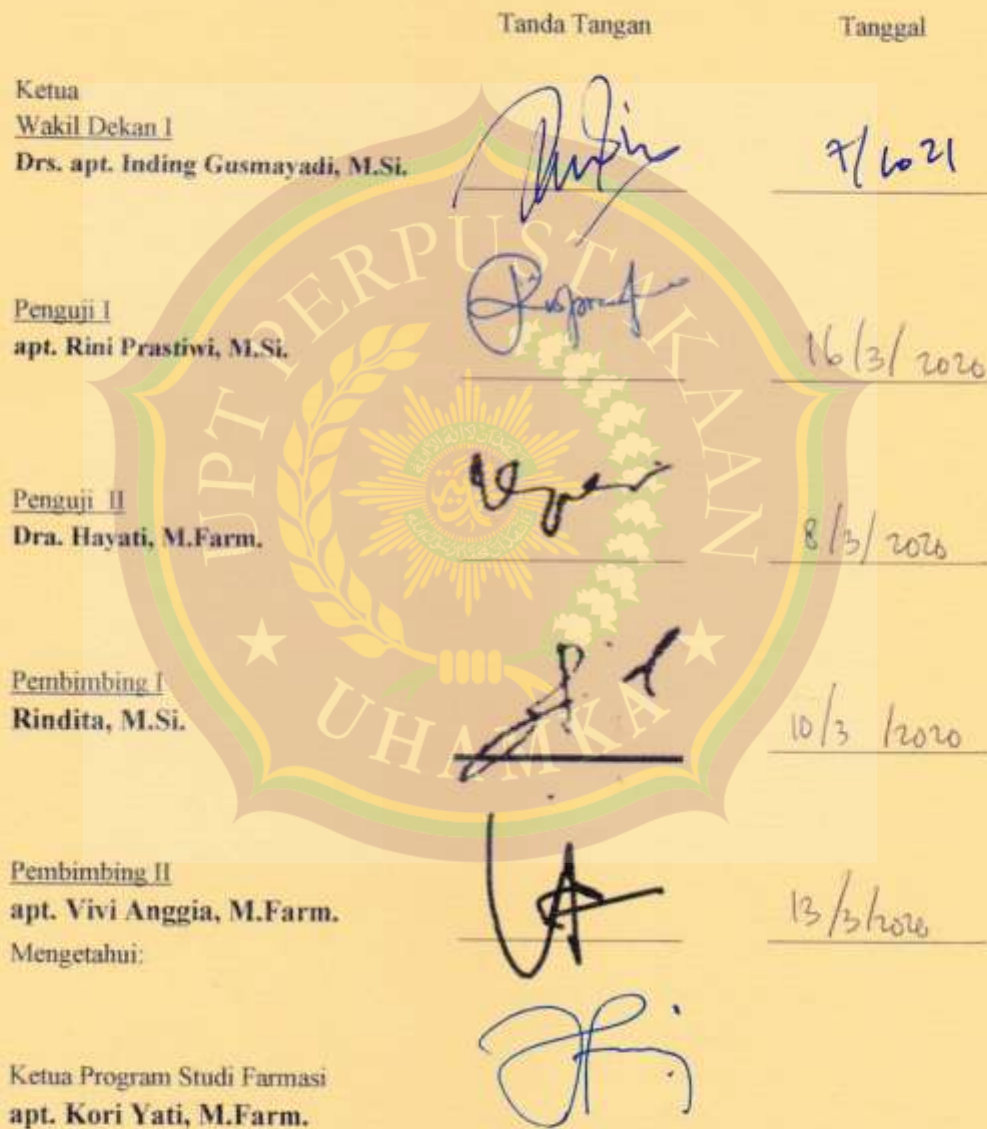 Tanda Tangan Tanggal
Ketua
Wakil Dekan I
Drs. apt. Inding Gusmayadi, M.Si. 7/10 21
Penguji I
apt. Rini Prastiwi, M.Si. 16/3/2020
Penguji II
Dra. Hayati, M.Farm. 8/3/2020
Pembimbing I
Rindita, M.Si. 10/3/2020
Pembimbing II
apt. Vivi Anggia, M.Farm. 13/3/2020
Mengetahui:
Ketua Program Studi Farmasi
apt. Kori Yati, M.Farm.
UPT PERPUSTAKAAN
UHAMKA